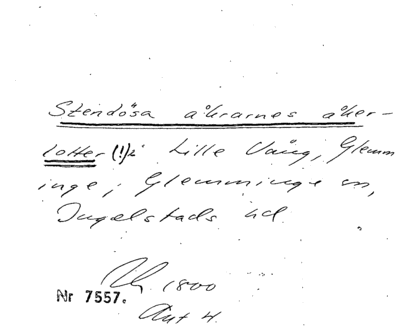 Stendösa åkrarnes åker-
lotter (!) i Lille Vång, Glemm
inge; Glemminge sn,
Ingelstads hd
1800
Nr 7557.
Akt 4.